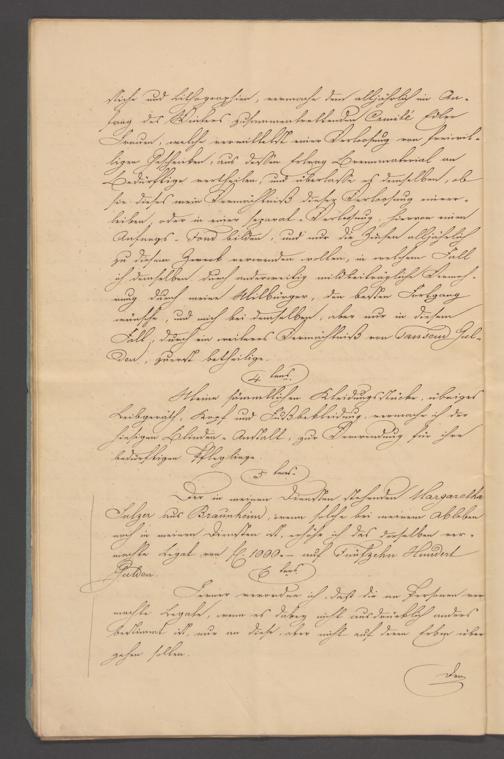 stiche und Lithographien, vermache dem alljährlich im An-
fang des Winters zusammentretenden Comité edler
Frauen, welche vermittelst einer Verloosung von freiwil-
ligen Geschenken, aus dessen Ertrag Brennmaterial an
Bedürftige vertheilen, und überlasse es demselben, ob
sie dieses mein Vermächtniß dieser Verloosung einver-
leiben, oder in einer separat-Verloosung, hiervon einen
Anfangs-Fond bilden, und nur die Zinsen alljährlich
zu diesem Zweck verwenden wollen, in welchem Fall
ich demselben durch anderweitig mildthätige Vermeh-
rung durch meine Mitbürger, den besten Fortgang
wünsche, und mich bei demselben, aber nur in diesem
Fall, durch ein weiteres Vermächtniß von Tausend Gul-
den, zuerst betheilige.
4tens.
Meine sämmtlichen Kleidungsstücke, übriges
Leibgeräth, Kopf und Fußbekleidung, vermache ich der
hiesigen Blinden-Anstalt, zur Verwendung für ihre
bedürftigen Pfleglinge.
5tens.
Der in meinen Diensten stehenden Margaretha
Sulzer aus Braunheim, wenn solche bei meinem Ableben
noch in meinen Diensten ist, erhöhe ich das derselben ver-
machte Legat von fl. 1000.- auf Fünfzehn Hundert
Gulden.
6tens.
Ferner verordne ich, daß die an Personen ver-
machte Legate, wenn es dabey nicht ausdrücklich anders
bestimmt ist, nur an diese, aber nicht auf deren Erben über
gehen sollen.
Den